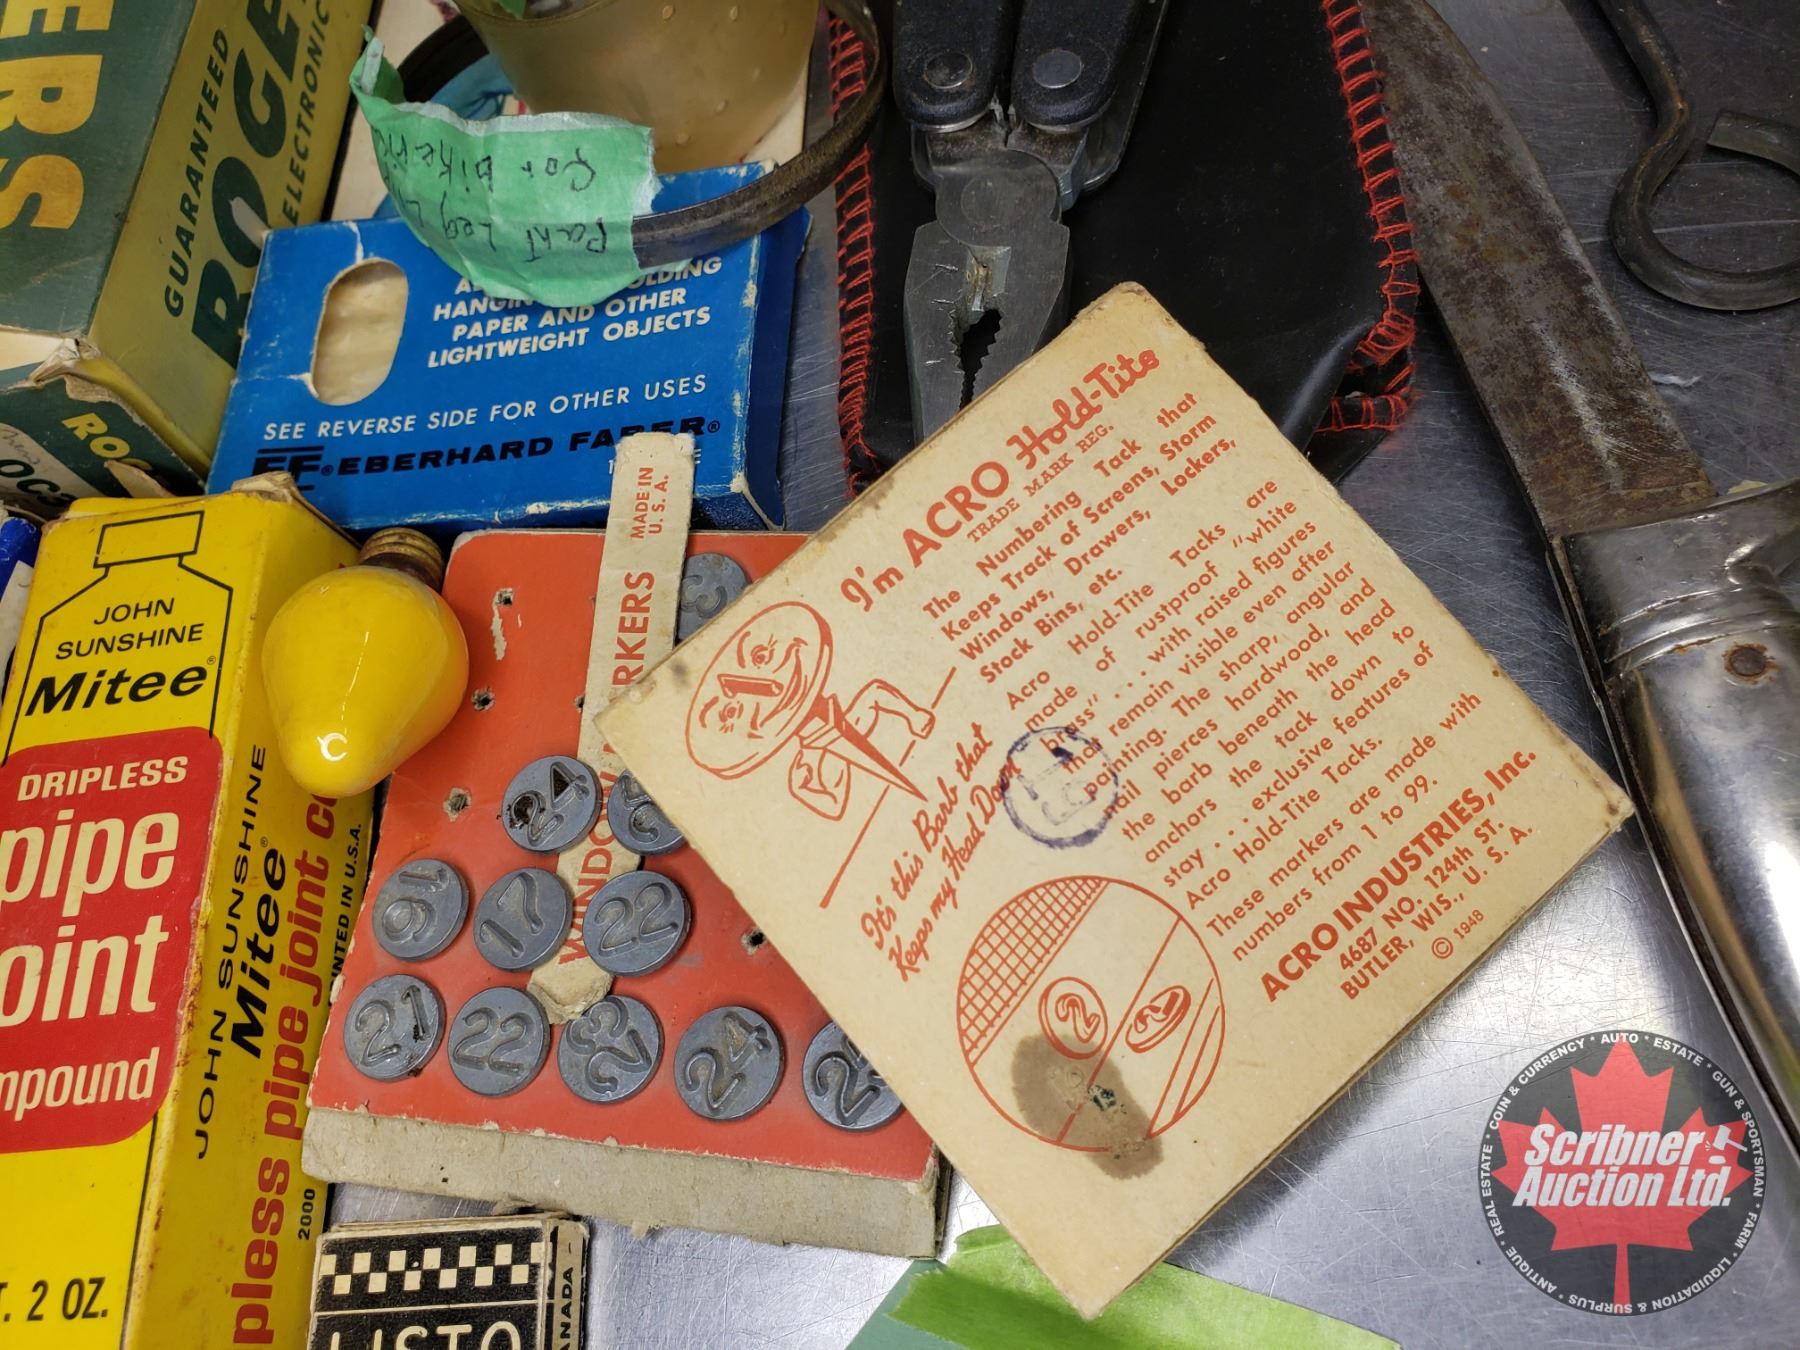 ERS
GUARANTEED
ROGE
ELECTRONIC
ROG
Pant Leg
For Bike
HANGIN
OLDING
PAPER AND OTHER
LIGHTWEIGHT OBJECTS
SEE REVERSE SIDE FOR OTHER USES
EF® EBERHARD FABER®
JOHN
SUNSHINE
Mitee®
DRIPLESS
pipe
oint
mpound
. 2 OZ.
JOHN SUNSHINE
Mitee®
pless pipe joint co
2000
NTED IN U.S.A.
MADE IN
U. S. A.
WINDOW MARKERS
24
16
17
22
21
22
23
24
25
I'm ACRO Hold-Tite
TRADE MARK REG.
The Numbering Tack that
Keeps Track of Screens, Storm
Windows, Drawers, Lockers,
Stock Bins, etc.
Acro Hold-Tite Tacks are
made of rustproof "white
brass" . . . with raised figures
that remain visible even after
painting. The sharp, angular
nail pierces hardwood, and
the barb beneath the head
anchors the tack down to
stay . . . exclusive features of
Acro Hold-Tite Tacks.
These markers are made with
numbers from 1 to 99.
ACRO INDUSTRIES, Inc.
4687 NO. 124th ST.
BUTLER, WIS., U. S. A.
© 1948
1
It's this Barb that
Keeps my Head Down
2
2
LISTO
ANADA
COIN & CURRENCY * AUTO * ESTATE * GUN & SPORTSMAN * FARM * LIQUIDATION & SURPLUS * ANTIQUE * REAL ESTATE *
Scribner
Auction Ltd.